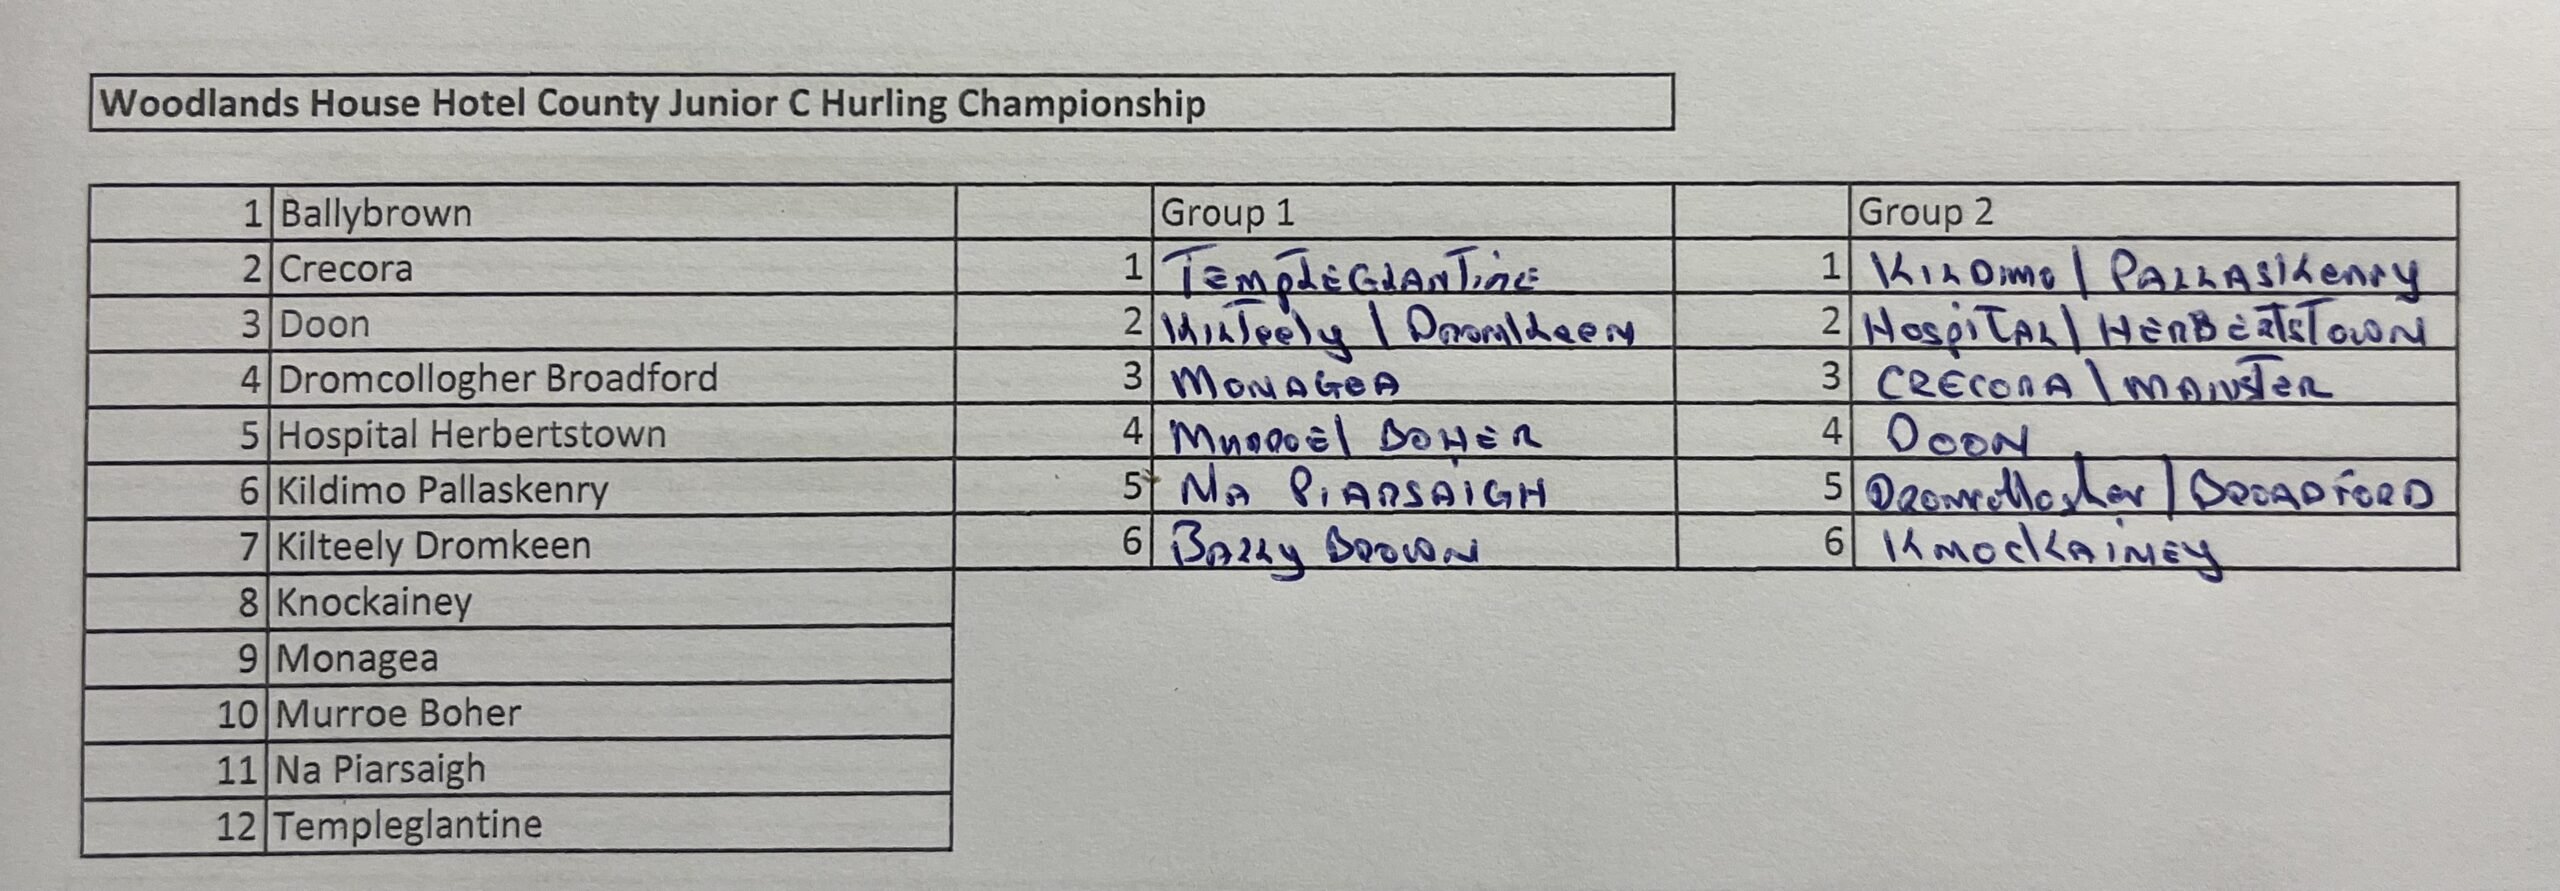 Woodlands House Hotel County Junior C Hurling Championship
1 Ballybrown Group 1 Group 2
2 Crecora 1 TEMPLEGLANTINE 1 KILDIMO / PALLASKENRY
3 Doon 2 KILTEELY / DROMKEEN 2 HOSPITAL / HERBERTSTOWN
4 Dromcollogher Broadford 3 MONAGEA 3 CRECORA \ MANISTER
5 Hospital Herbertstown 4 MURROE / BOHER 4 DOON
6 Kildimo Pallaskenry 5 NA PIARSAIGH 5 DROMCOLLOGHER / BROADFORD
7 Kilteely Dromkeen 6 BALLY BROWN 6 KNOCKAINEY
8 Knockainey
9 Monagea
10 Murroe Boher
11 Na Piarsaigh
12 Templeglantine